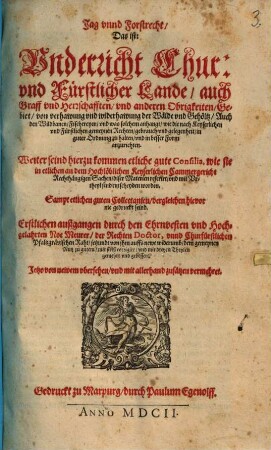 3
Jag vnnd Forstrecht/
Das ist:
Vnderricht Chur:
vnd Fürstlicher Lande/ auch
Graff vnd Herrschafften/ vnd anderen Obrigkeiten/ Ge-
biet/ von verhawung vnd widerhawung der Wälde vnd Gehöltz/ Auch
den Wildbänen/ Fischereyen/ vnd was solchen anhangt/ wie die nach Keyserlichen
vnd Fürstlichen gemeynen Rechten/ gebrauch vnd gelegenheit/ in
guter Ordnung zu halten/ vnd in besser Form
anzurichten.
Weiter seind hierzu kommen etliche gute Consilia, wie sie
in etlichen an dem Hochlöblichen Keyserlichen Cammergericht
Rechthängigen Sachen/ diser Materien
entscheyden worden.
Sampt etlichen guten Collectaneis/ dergleichen hievor
nie gedruckt seind.
Erstlichen außgangen durch den Ehrnvesten vnd Hoch-
gelahrten Noe Meurer/ der Rechten Doctor, vnnd Churfürstlichen
Pfaltzgräfischen Raht/
gemehrt vnd gebessert.
Jetzo von newem vbersehen/ vnd mit allerhand zusätzen vermehret.
Gedruckt zu Marpurg/ durch Paulum Egenolff.
ANNO MDCII.